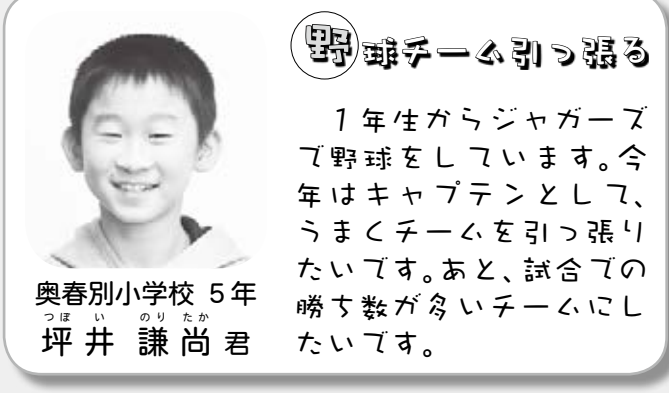 野球チーム引っ張る
１年生からジャガーズ
で野球をしています。今
年はキャプテンとして、
うまくチームを引っ張り
たいです。あと、試合での
勝ち数が多いチームにし
たいです。
奥春別小学校 ５年
つぼ い のり たか
坪井 謙尚君